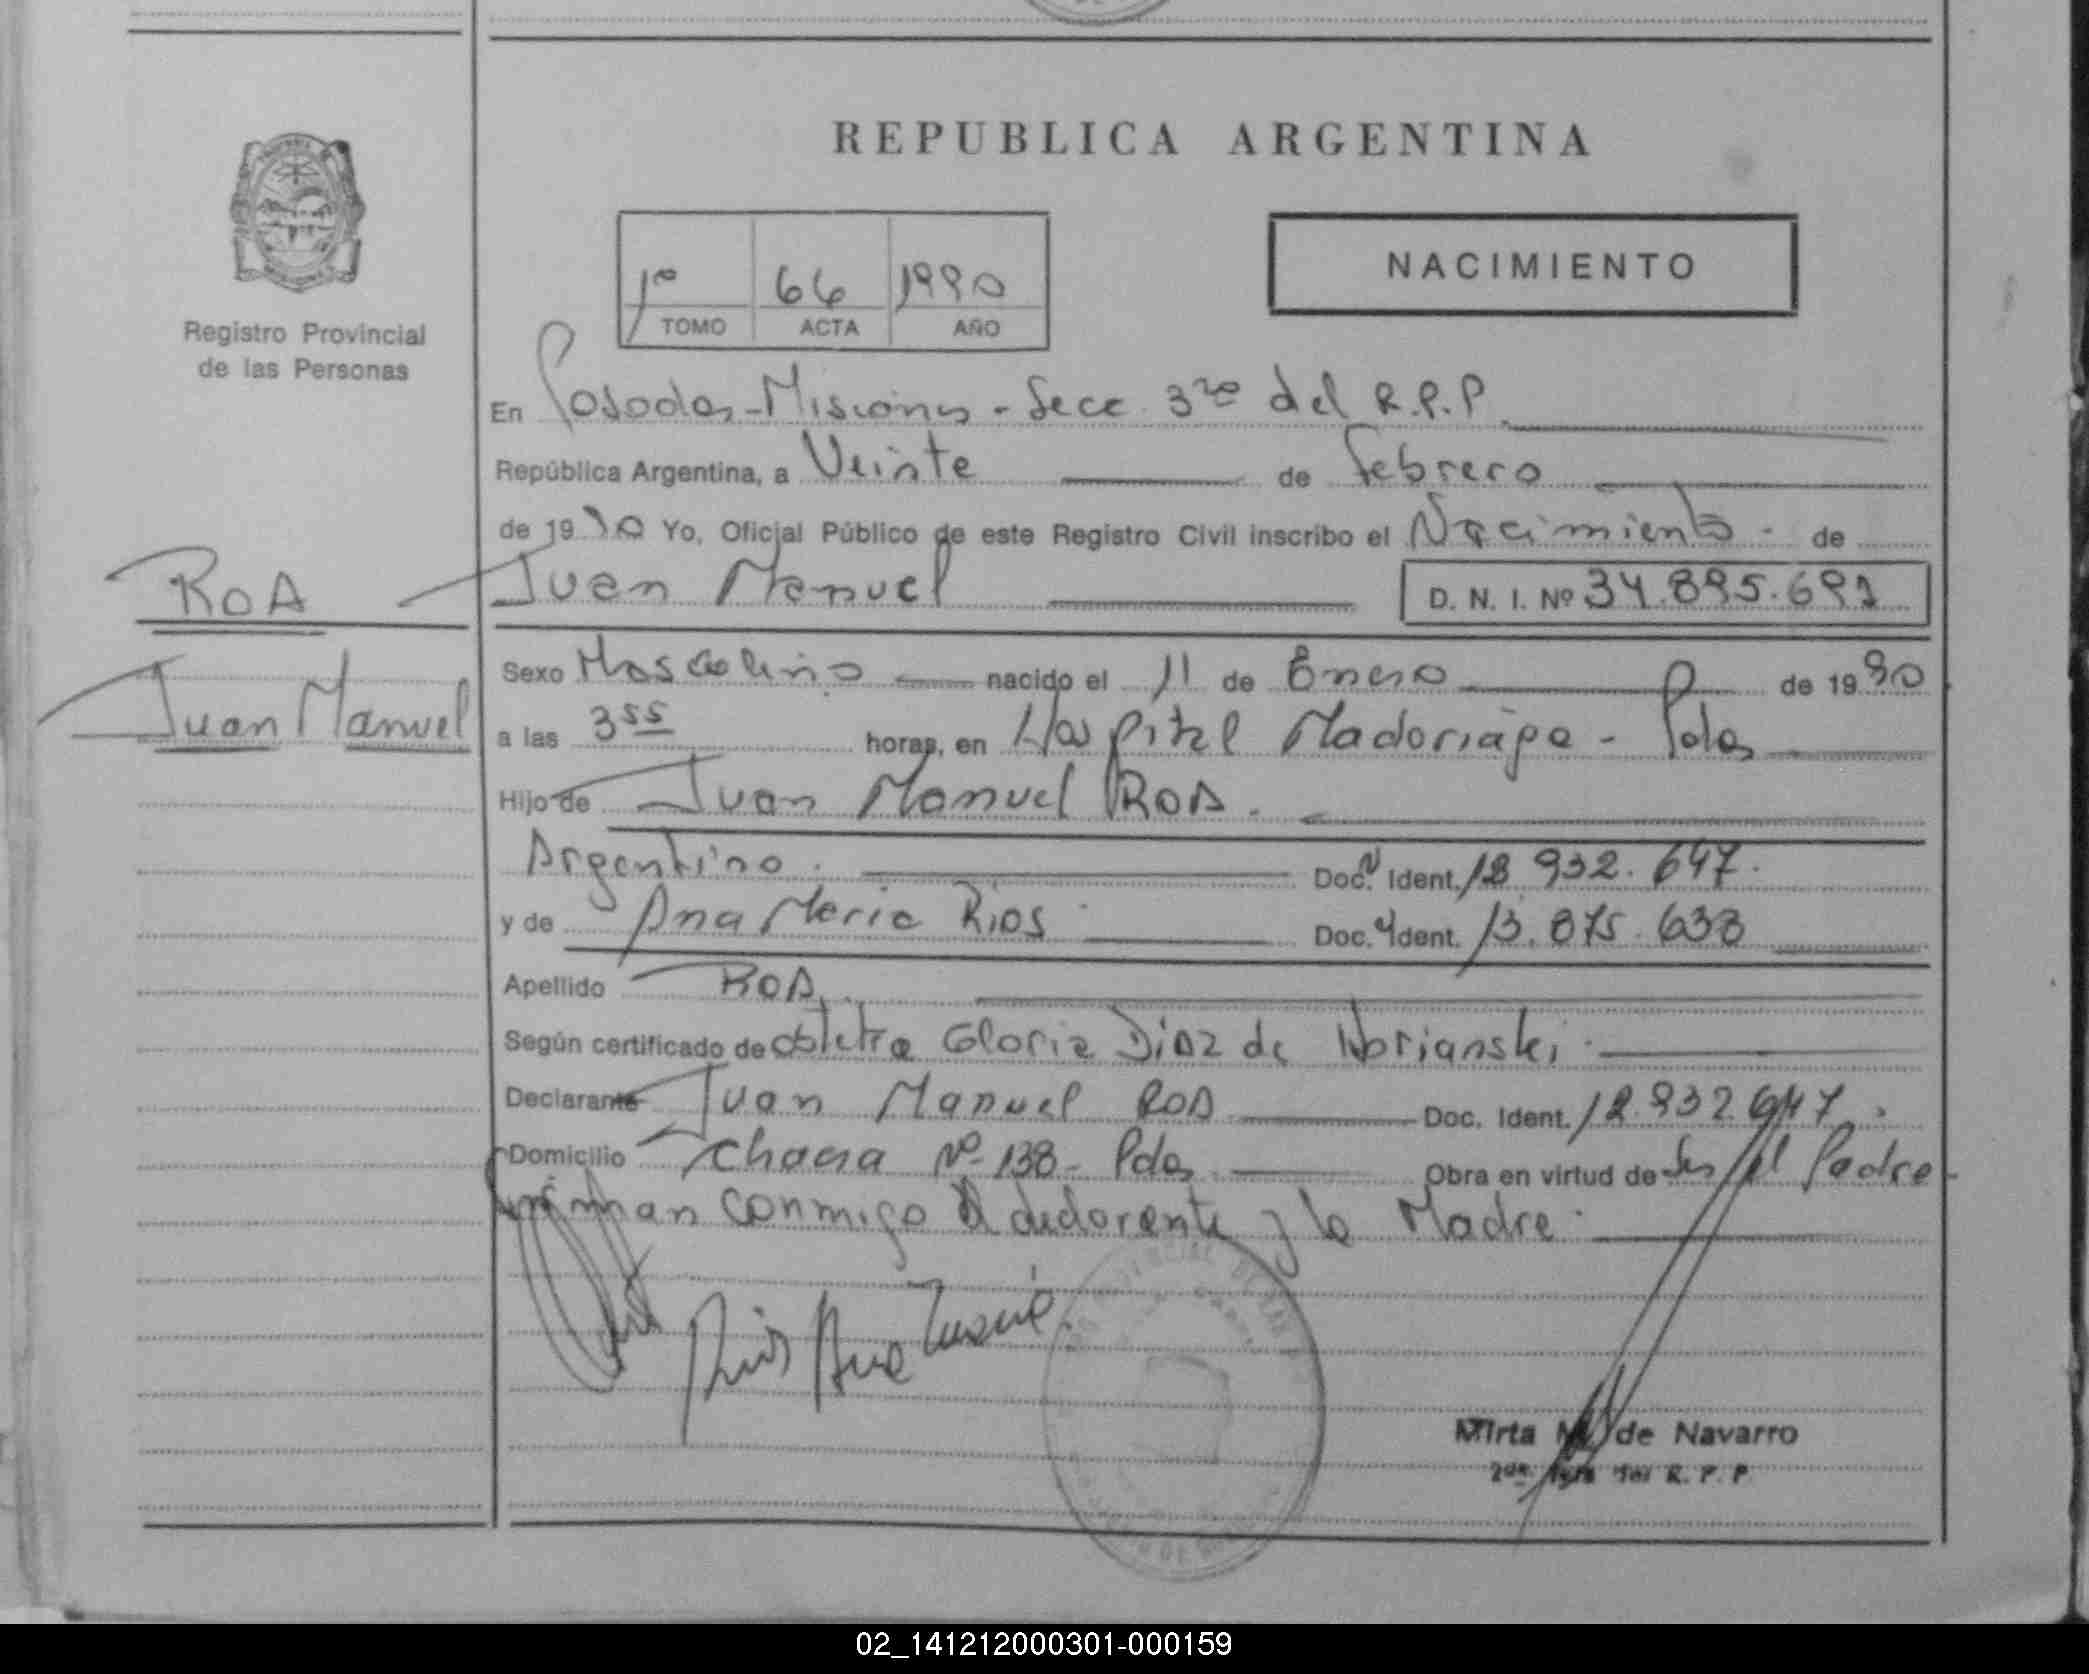 REPUBLICA ARGENTINA
NACIMIENTO
1º 66 1990
TOMO ACTA AÑO
Registro Provincial
de las Personas
En Posadas - Misiones - Secc. 3ra del R.P.P.
República Argentina, a Veinte de Febrero
de 1990 Yo, Oficial Público de este Registro Civil inscribo el Nacimiento - de
ROA
Juan Manuel D. N. I. Nº 34.895.691
Juan Manuel
Sexo Masculino nacido el 11 de Enero de 1990
a las 3 55 horas, en Hospital Madariaga - Pdas
Hijo de Juan Manuel ROA.
Argentino. Doc. Ident. 12 932.647.
y de Ana Maria Rios Doc. Ident. 13.875.638
Apellido ROA.
Según certificado de obstetra Gloria Diaz de
Declarante Juan Manuel ROA Doc. Ident. 12.932.647.
Domicilio Chacra Nº 138 - Pdas Obra en virtud de Ser el Padre
Firman conmigo el declarante y la Madre.
Rios Ana Maria
Mirta M. de Navarro
R. P. P.
02_141212000301-000159